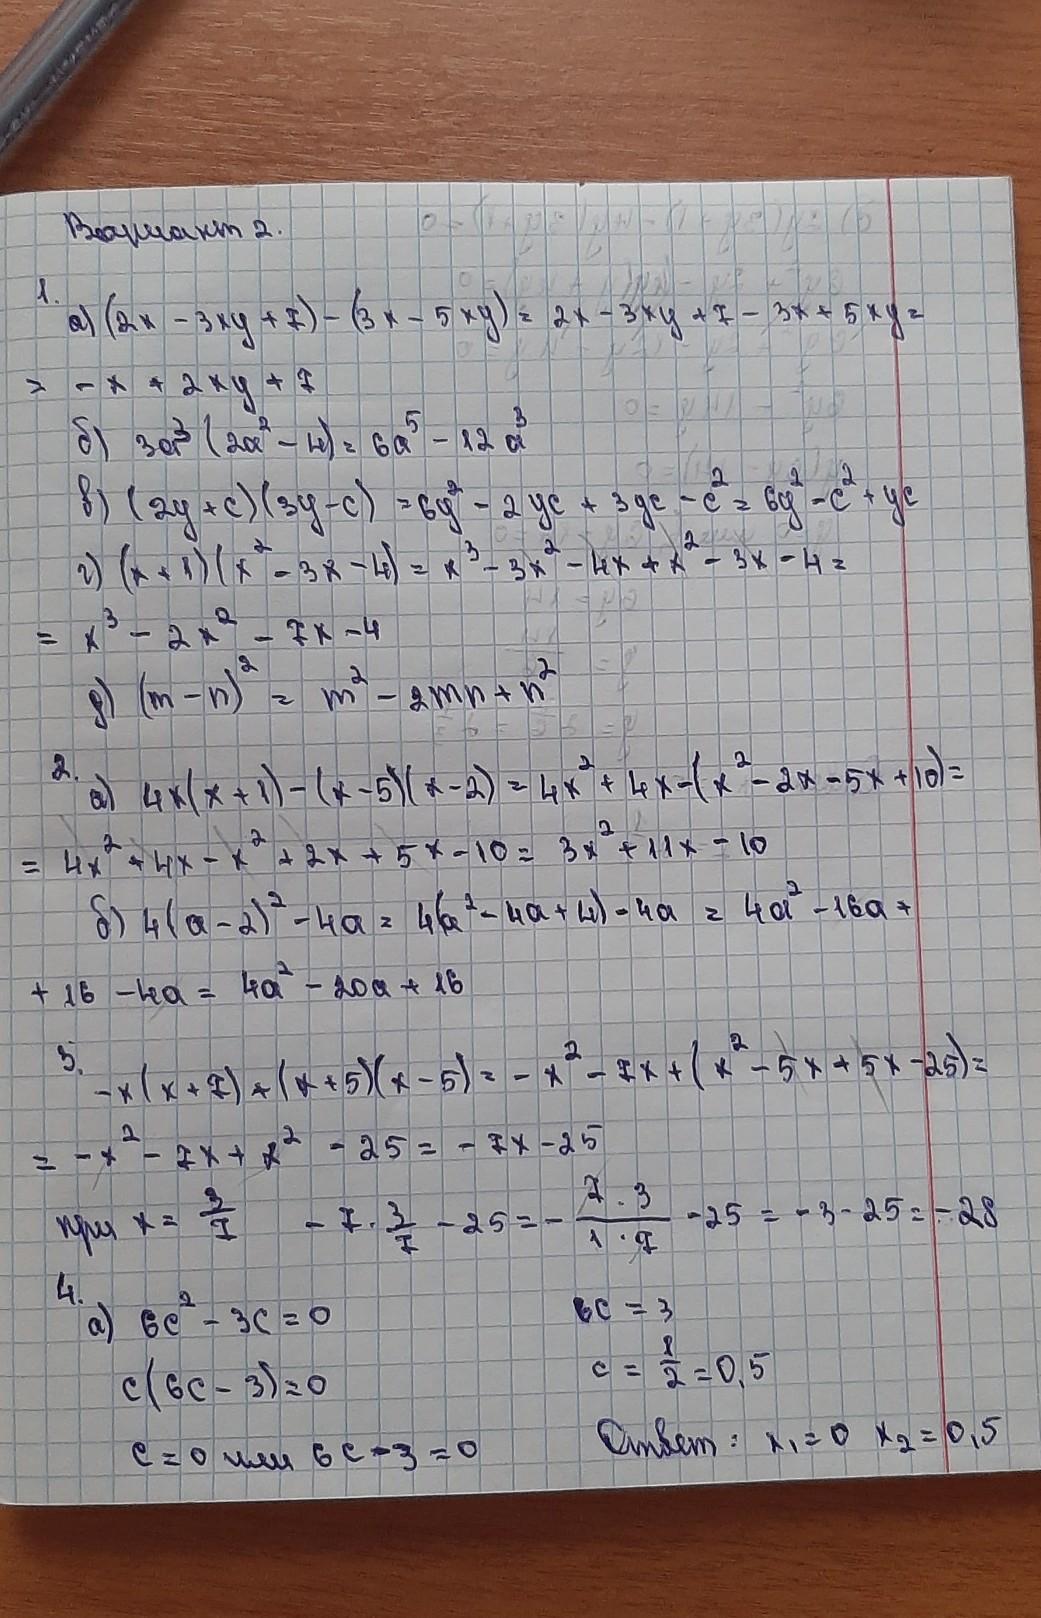 Вариант 2.
1.
а) (2x - 3xy + 7) - (3x - 5xy) = 2x - 3xy + 7 - 3x + 5xy =
= - x + 2xy + 7
б) 3a³ (2a² - 4) = 6a⁵ - 12a³
в) (2y + c)(3y - c) = 6y² - 2yc + 3yc - c² = 6y² - c² + yc
г) (x + 1)(x² - 3x - 4) = x³ - 3x² - 4x + x² - 3x - 4 =
= x³ - 2x² - 7x - 4
д) (m - n)² = m² - 2mn + n²
2.
а) 4x(x + 1) - (x - 5)(x - 2) = 4x² + 4x - (x² - 2x - 5x + 10) =
= 4x² + 4x - x² + 2x + 5x - 10 = 3x² + 11x - 10
б) 4(a - 2)² - 4a = 4(a² - 4a + 4) - 4a = 4a² - 16a +
+ 16 - 4a = 4a² - 20a + 16
3.
- x(x + 7) + (x + 5)(x - 5) = - x² - 7x + (x² - 5x + 5x - 25) =
= - x² - 7x + x² - 25 = - 7x - 25
при x = 3/7 - 7 · 3/7 - 25 = - 7 · 3/1 · 7 - 25 = - 3 - 25 = - 28
4.
а) 6c² - 3c = 0
c(6c - 3) = 0
c = 0 или 6c - 3 = 0
6c = 3
c = 1/2 = 0,5
Ответ: x₁ = 0 x₂ = 0,5